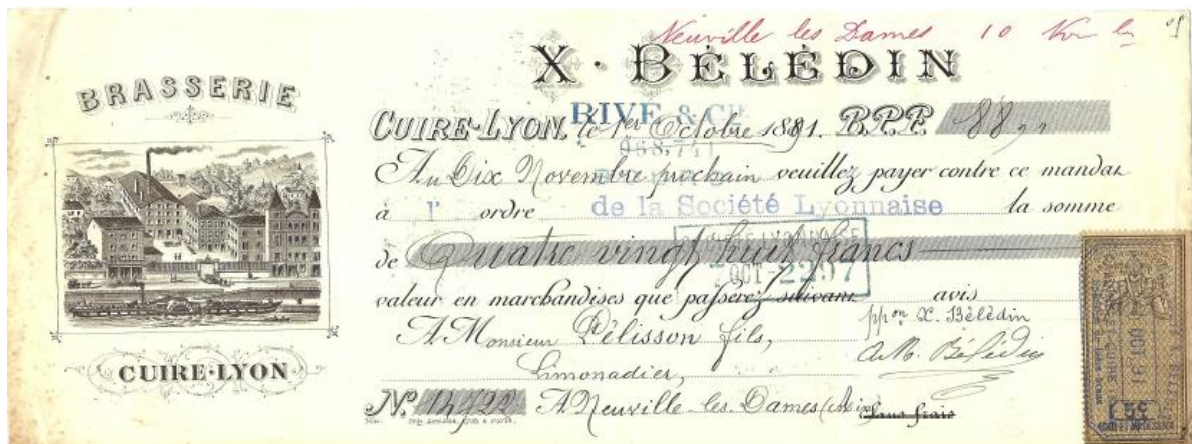 Neuville les Dames 10
X. BÉLÉDIN
BRASSERIE
CUIRE-LYON
RIVE & CIE
CUIRE-LYON, le 1er Octobre 1891. B.P.F. 88 "
968,741
Au Dix Novembre prochain veuillez payer contre ce mandat
à l' ordre de la Société Lyonnaise la somme
de Quatre vingt huit francs
OCT - 2297
valeur en marchandises que passerez suivant avis
ppon X. Bélédin
A Monsieur Pélisson fils,
A.M. Bélédin
Limonadier,
No. 14722 A Neuville les Dames (Ain) Sans frais
OCT 91